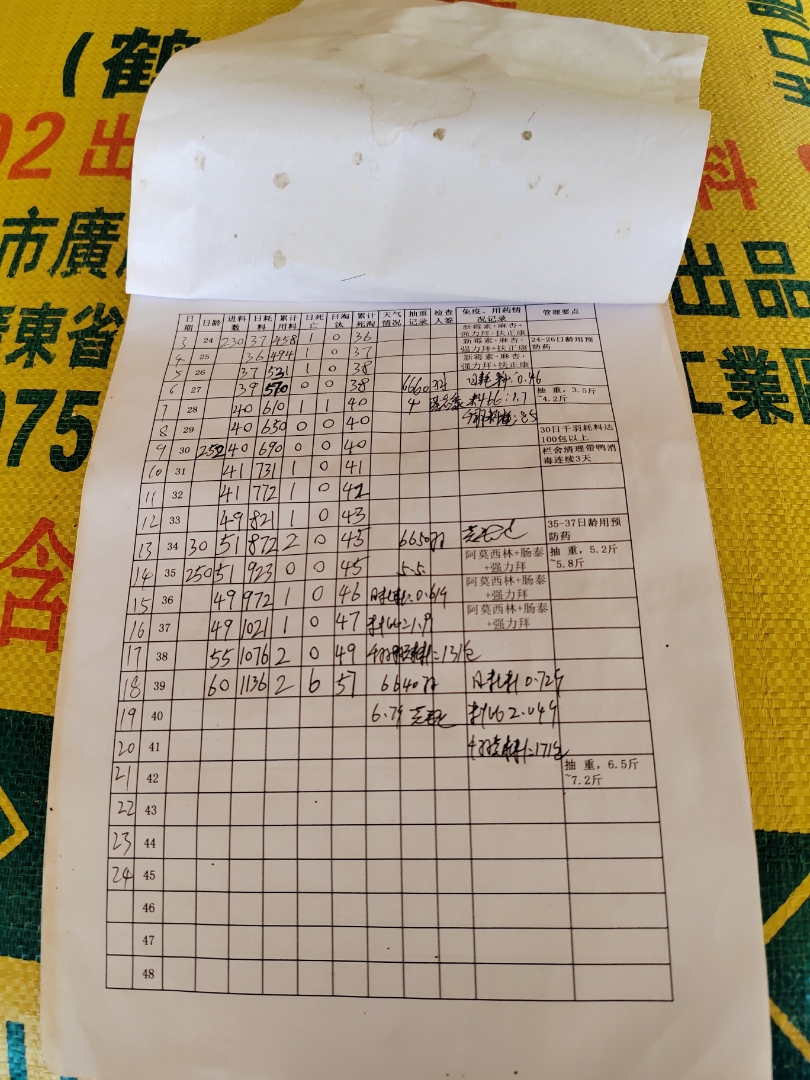 (鹤
02 出
料
市廣
出品
廣東省
工業園
975
含
日期 日龄 进料数 日耗料 累计用料 日死亡 日淘汰 累计死淘 天气情况 抽重记录 检查人签 免疫、用药情况记录 管理要点
3 24 230 37 458 1 0 36 新霉素+麻杏+强力拜+扶正康 24-26日龄用预防药
4 25 36 494 1 0 37 新霉素+麻杏+强力拜+扶正康
5 26 37 531 1 0 38 新霉素+麻杏+强力拜+扶正康
6 27 39 570 0 0 38 6660羽 日耗料:0.46
7 28 40 610 1 1 40 4 料比:1.7 抽重,3.5斤~4.2斤
8 29 40 650 0 0 40 :85
9 30 252 40 690 0 0 40 30日千羽耗料达100包以上
10 31 41 731 1 0 41 栏舍清理带鸭消毒连续3天
11 32 41 772 1 0 42
12 33 49 821 1 0 43
13 34 30 51 872 2 0 45 6650羽 35-37日龄用预防药
14 35 250 51 923 0 0 45 5.5 阿莫西林+肠泰+强力拜 抽重,5.2斤~5.8斤
15 36 49 972 1 0 46 日耗料:0.619 阿莫西林+肠泰+强力拜
16 37 49 1021 1 0 47 料比1.9 阿莫西林+肠泰+强力拜
17 38 55 1076 2 0 49 千羽耗料:131包
18 39 60 1136 2 6 57 6640羽 日耗料0.729
19 40 6.79 料比2.049
20 41 千羽耗料:171包
21 42 抽重,6.5斤~7.2斤
22 43
23 44
24 45
46
47
48